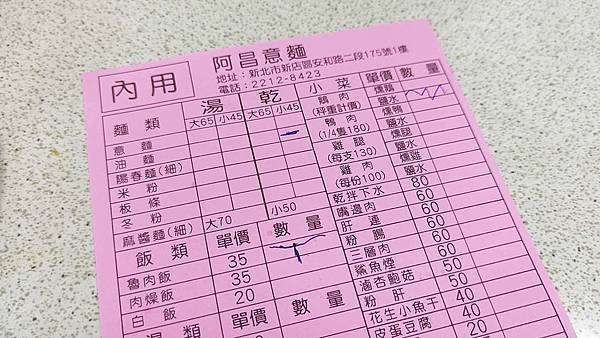 內用
阿昌意麵
地址：新北市新店區安和路二段175號1樓
電話：2212-8423
麵類 湯 乾
大65 小45 大65 小45
意麵
油麵
陽春麵(細)
米粉
板條
冬粉
麻醬麵(細) 大70 小50
飯類 單價 數量
魯肉飯 35
肉燥飯 35
白飯 20
湯類 單價 數量
小菜 單價 數量
鵝肉 燻鵝
(秤重計價) 鹽水
鴨肉 燻鴨
(1/4隻180) 鹽水
雞腿 燻腿
(每支130) 鹽水
雞肉 燻雞
(每份100) 鹽水
乾拌下水 80
嘴邊肉 60
肝連 60
粉腸 60
三層肉 60
鯊魚煙 50
滷杏鮑菇 50
粉肝 40
花生小魚干 40
皮蛋豆腐 20